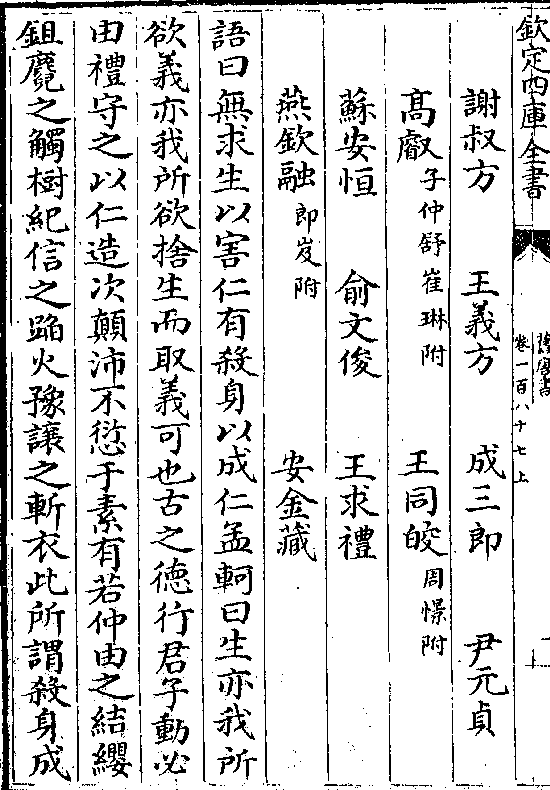 欽定四庫全書
舊唐書
卷一百八十七上
謝叔方 王義方 成三郎 尹元貞
高叡子仲舒崔琳附 王同皎周憬附
蘇安恒 俞文俊 王求禮
燕欽融郎岌附 安金藏
語曰無求生以害仁有殺身以成仁孟軻曰生亦我所
欲義亦我所欲捨生而取義可也古之德行君子動必
由禮守之以仁造次顛沛不愆于素有若仲由之結纓
鉏麑之觸樹紀信之蹈火豫讓之斬衣此所謂殺身成